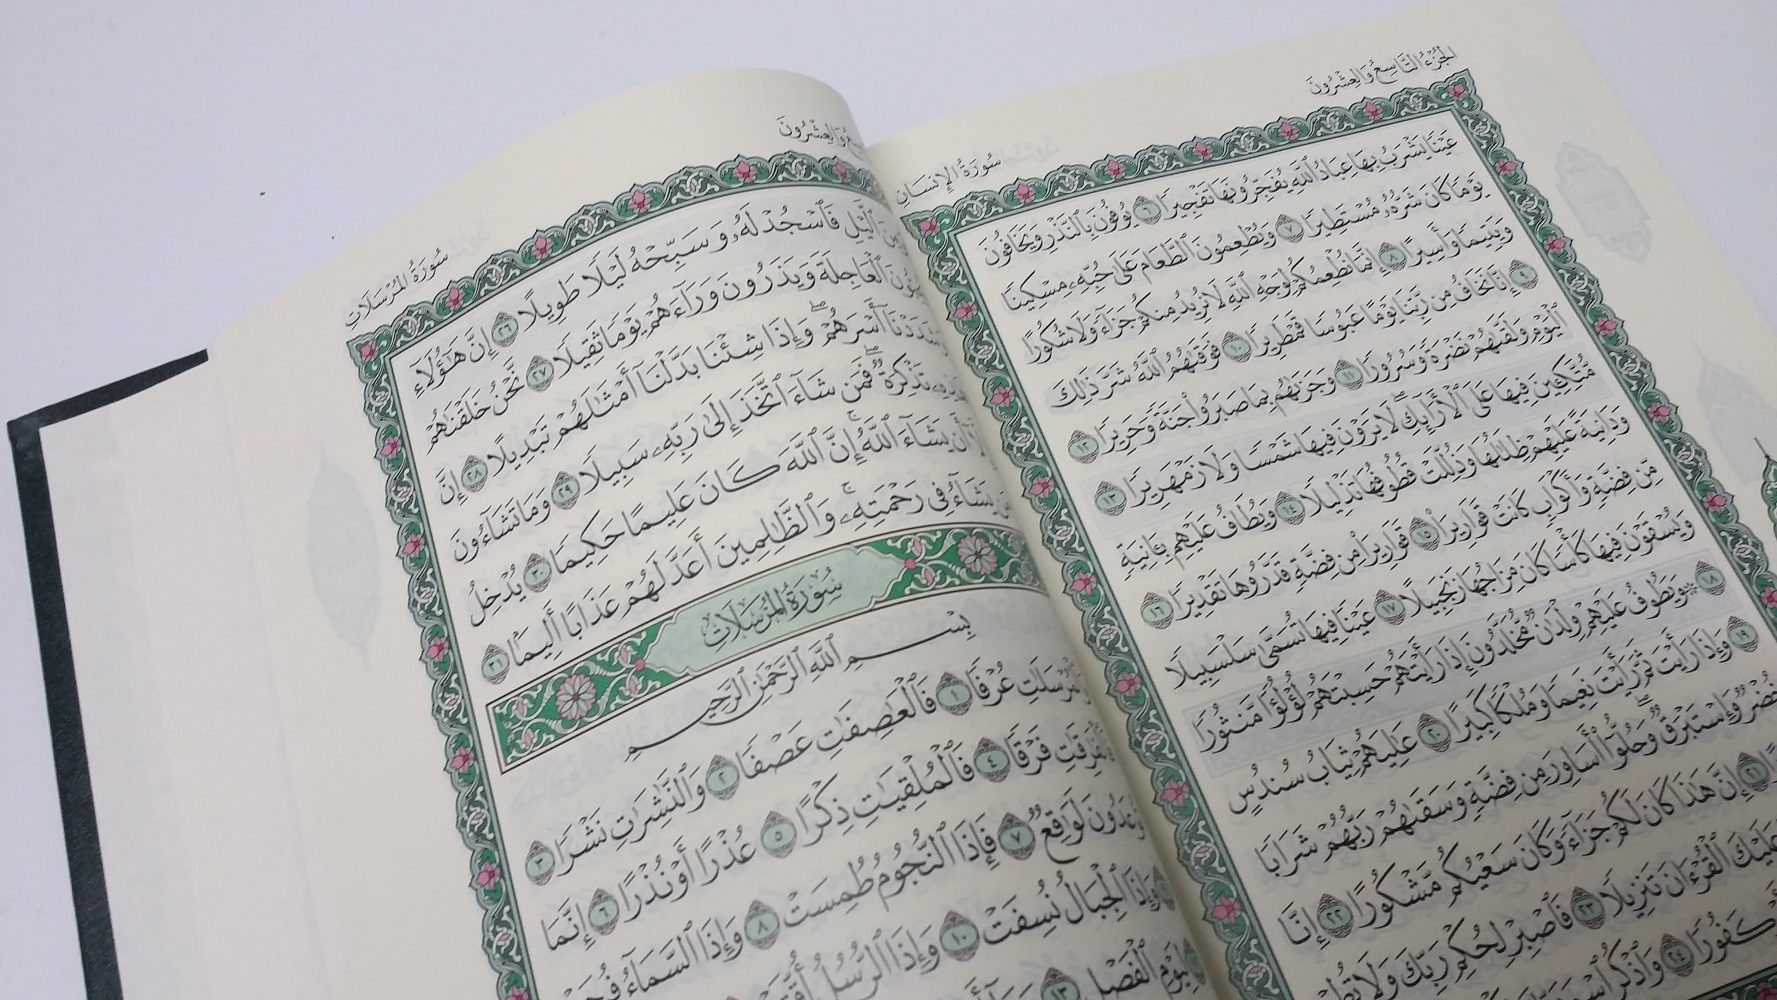 الجزء التاسع والعشرون
سورة الإنسان
عَيْنًا يَشْرَبُ بِهَا عِبَادُ ٱللَّهِ يُفَجِّرُونَهَا تَفْجِيرًا ٦ يُوفُونَ بِٱلنَّذْرِ وَيَخَافُونَ
يَوْمًا كَانَ شَرُّهُۥ مُسْتَطِيرًا ٧ وَيُطْعِمُونَ ٱلطَّعَامَ عَلَىٰ حُبِّهِۦ مِسْكِينًا
وَيَتِيمًا وَأَسِيرًا ٨ إِنَّمَا نُطْعِمُكُمْ لِوَجْهِ ٱللَّهِ لَا نُرِيدُ مِنكُمْ جَزَآءً وَلَا شُكُورًا
٩ إِنَّا نَخَافُ مِن رَّبِّنَا يَوْمًا عَبُوسًا قَمْطَرِيرًا ١٠ فَوَقَىٰهُمُ ٱللَّهُ شَرَّ ذَٰلِكَ
ٱلْيَوْمِ وَلَقَّىٰهُمْ نَضْرَةً وَسُرُورًا ١١ وَجَزَىٰهُم بِمَا صَبَرُوا۟ جَنَّةً وَحَرِيرًا ١٢
مُّتَّكِـِٔينَ فِيهَا عَلَى ٱلْأَرَآئِكِ ۖ لَا يَرَوْنَ فِيهَا شَمْسًا وَلَا زَمْهَرِيرًا ١٣
وَدَانِيَةً عَلَيْهِمْ ظِلَٰلُهَا وَذُلِّلَتْ قُطُوفُهَا تَذْلِيلًا ١٤ وَيُطَافُ عَلَيْهِم بِـَٔانِيَةٍ
مِّن فِضَّةٍ وَأَكْوَابٍ كَانَتْ قَوَارِيرَا۠ ١٥ قَوَارِيرَا۟ مِن فِضَّةٍ قَدَّرُوهَا تَقْدِيرًا ١٦
وَيُسْقَوْنَ فِيهَا كَأْسًا كَانَ مِزَاجُهَا زَنجَبِيلًا ١٧ عَيْنًا فِيهَا تُسَمَّىٰ سَلْسَبِيلًا
١٨ ۞ وَيَطُوفُ عَلَيْهِمْ وِلْدَٰنٌ مُّخَلَّدُونَ إِذَا رَأَيْتَهُمْ حَسِبْتَهُمْ لُؤْلُؤًا مَّنثُورًا
١٩ وَإِذَا رَأَيْتَ ثَمَّ رَأَيْتَ نَعِيمًا وَمُلْكًا كَبِيرًا ٢٠ عَٰلِيَهُمْ ثِيَابُ سُندُسٍ
خُضْرٌ وَإِسْتَبْرَقٌ ۖ وَحُلُّوٓا۟ أَسَاوِرَ مِن فِضَّةٍ وَسَقَىٰهُمْ رَبُّهُمْ شَرَابًا
٢١ إِنَّ هَٰذَا كَانَ لَكُمْ جَزَآءً وَكَانَ سَعْيُكُم مَّشْكُورًا ٢٢ إِنَّا
عَلَيْكَ ٱلْقُرْءَانَ تَنزِيلًا ٢٣ فَٱصْبِرْ لِحُكْمِ رَبِّكَ وَلَا
كَفُورًا ٢٤ وَٱذْكُرِ
والعشرون
سورة المرسلات
ٱلَّيْلِ فَٱسْجُدْ لَهُۥ وَسَبِّحْهُ لَيْلًا طَوِيلًا ٢٦ إِنَّ هَٰٓؤُلَآءِ
ٱلْعَاجِلَةَ وَيَذَرُونَ وَرَآءَهُمْ يَوْمًا ثَقِيلًا ٢٧ نَّحْنُ خَلَقْنَٰهُمْ
أَسْرَهُمْ ۖ وَإِذَا شِئْنَا بَدَّلْنَآ أَمْثَٰلَهُمْ تَبْدِيلًا ٢٨ إِنَّ
تَذْكِرَةٌ ۖ فَمَن شَآءَ ٱتَّخَذَ إِلَىٰ رَبِّهِۦ سَبِيلًا ٢٩ وَمَا تَشَآءُونَ
أَن يَشَآءَ ٱللَّهُ ۚ إِنَّ ٱللَّهَ كَانَ عَلِيمًا حَكِيمًا ٣٠ يُدْخِلُ
يَشَآءُ فِى رَحْمَتِهِۦ ۚ وَٱلظَّٰلِمِينَ أَعَدَّ لَهُمْ عَذَابًا أَلِيمًۢا ٣١
سورة المرسلات
بِسْمِ ٱللَّهِ ٱلرَّحْمَٰنِ ٱلرَّحِيمِ
عُرْفًا ١ فَٱلْعَٰصِفَٰتِ عَصْفًا ٢ وَٱلنَّٰشِرَٰتِ نَشْرًا ٣
فَرْقًا ٤ فَٱلْمُلْقِيَٰتِ ذِكْرًا ٥ عُذْرًا أَوْ نُذْرًا ٦ إِنَّمَا
لَوَٰقِعٌ ٧ فَإِذَا ٱلنُّجُومُ طُمِسَتْ ٨ وَإِذَا ٱلسَّمَآءُ
وَإِذَا ٱلْجِبَالُ نُسِفَتْ ١٠ وَإِذَا ٱلرُّسُلُ
لِيَوْمِ ٱلْفَصْلِ ١٣